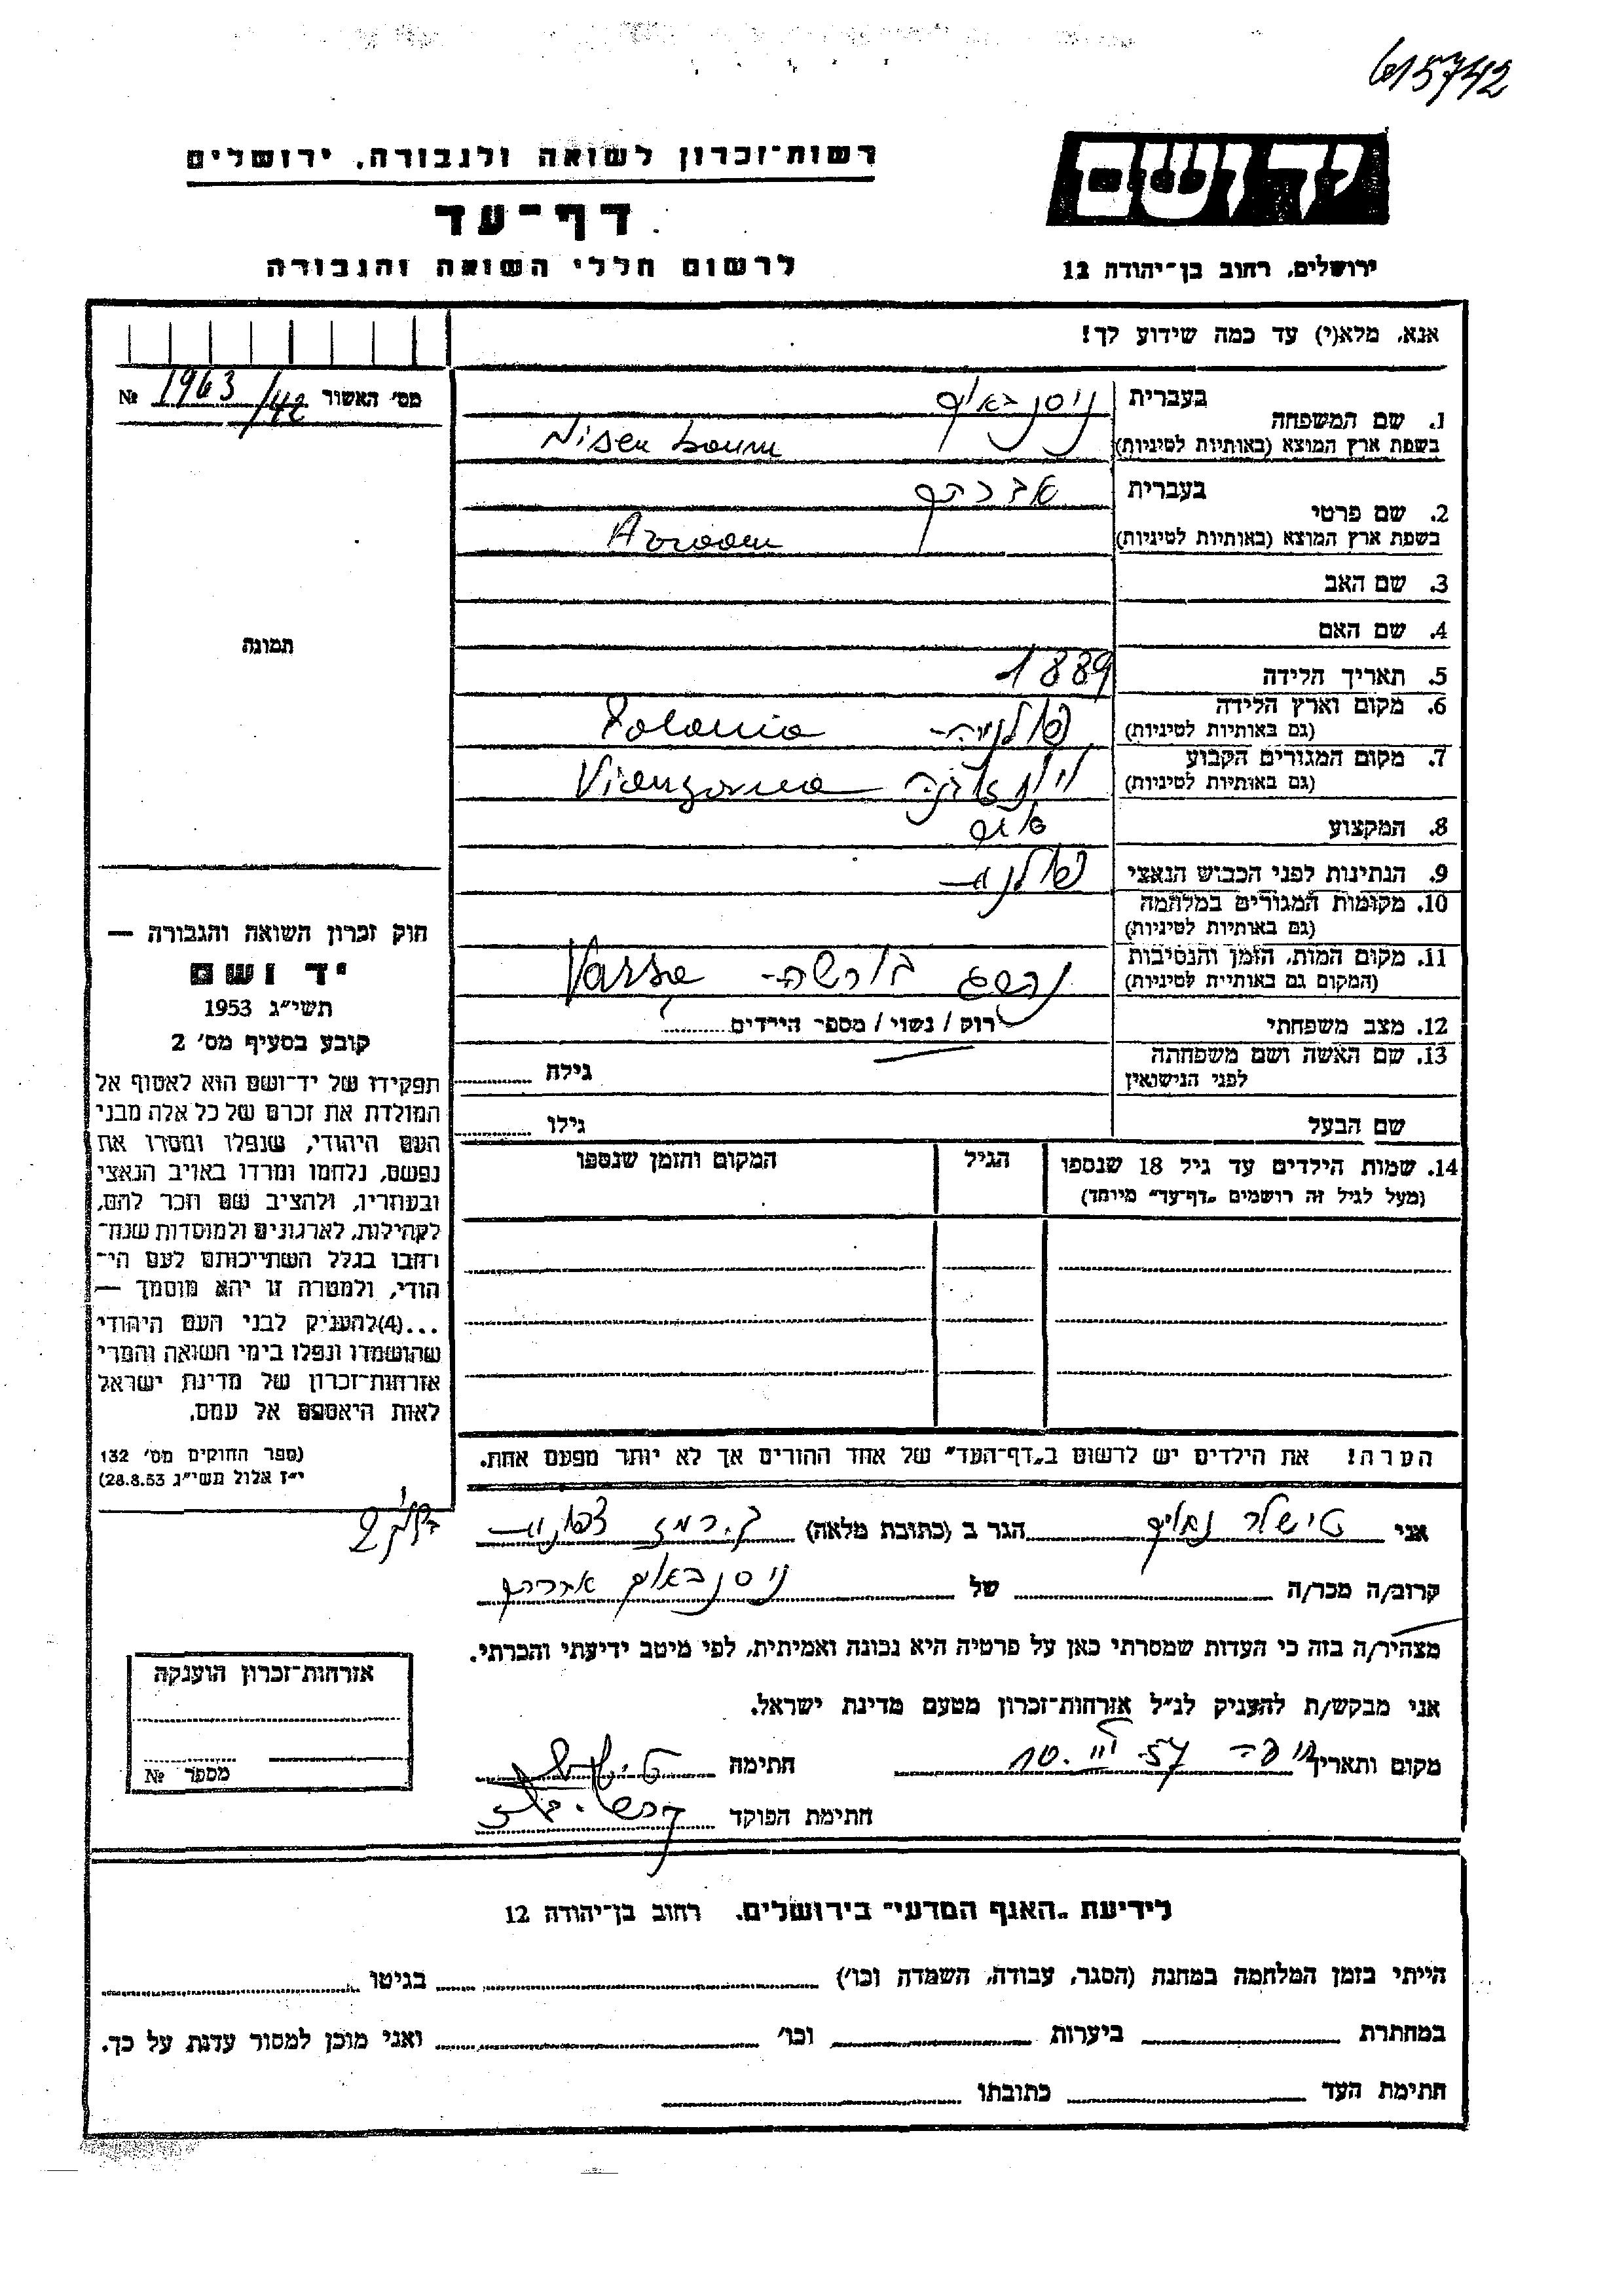 615742
רשות־זכרון לשואה ולגבורה, ירושלים
יד ושם
דף־עד
לרשום חללי השואה והגבורה
ירושלים, רחוב בן־יהודה 12
אנא, מלא(י) עד כמה שידוע לך!
מס' האשור 1963/42 №
1. שם המשפחה בעברית ניסנבאום
בשפת ארץ המוצא (באותיות לטיניות) Nisenboum
2. שם פרטי בעברית אברהם
בשפת ארץ המוצא (באותיות לטיניות)
3. שם האב
4. שם האם
תמונה
5. תאריך הלידה 1889
6. מקום וארץ הלידה
(גם באותיות לטיניות) פולניה Polonia
7. מקום המגורים הקבוע
(גם באותיות לטיניות)
8. המקצוע
9. הנתינות לפני הכבוש הנאצי פולנית
10. מקומות המגורים במלחמה
(גם באותיות לטיניות)
11. מקום המות, הזמן והנסיבות
(המקום גם באותיות לטיניות) נרצח בורשה
12. מצב משפחתי רוק / נשוי / מספר הילדים
13. שם האשה ושם משפחתה
לפני הנישואין גילה
שם הבעל גילו
14. שמות הילדים עד גיל 18 שנספו הגיל המקום והזמן שנספו
(מעל לגיל זה רושמים „דף־עד" מיוחד)
הערה! את הילדים יש לרשום ב„דף־העד" של אחד ההורים אך לא יותר מפעם אחת.
חוק זכרון השואה והגבורה —
יד ושם
תשי"ג 1953
קובע בסעיף מס' 2
תפקידו של יד־ושם הוא לאסוף אל
המולדת את זכרם של כל אלה מבני
העם היהודי, שנפלו ומסרו את
נפשם, נלחמו ומרדו באויב הנאצי
ובעוזריו, ולהציב שם וזכר להם,
לקהילות, לארגונים ולמוסדות שנח־
רחבו בגלל השתייכותם לעם הי־
הודי, ולמטרה זו יהא מוסמך —
...(4)להעניק לבני העם היהודי
שהושמדו ונפלו בימי השואה והמרי
אזרחות־זכרון של מדינת ישראל
לאות היאספם אל עמם.
(ספר החוקים מס' 132
י"ז אלול תשי"ג 28.8.53)
אני טישלר הגר ב (כתובת מלאה)
קרוב/ה מכר/ה של ניסנבאום אברהם
מצהיר/ה בזה כי העדות שמסרתי כאן על פרטיה היא נכונה ואמיתית, לפי מיטב ידיעתי והכרתי.
אני מבקש/ת להעניק לנ"ל אזרחות־זכרון מטעם מדינת ישראל.
מקום ותאריך חיפה 10.III.57 חתימה
חתימת הפוקד
אזרחות־זכרון הוענקה
מספר №
לידיעת „האגף המדעי" בירושלים, רחוב בן־יהודה 12
הייתי בזמן המלחמה במחנה (הסגר, עבודה, השמדה וכו') בגיטו
במחתרת ביערות וכו' ואני מוכן למסור עדות על כך.
חתימת העד כתובתו